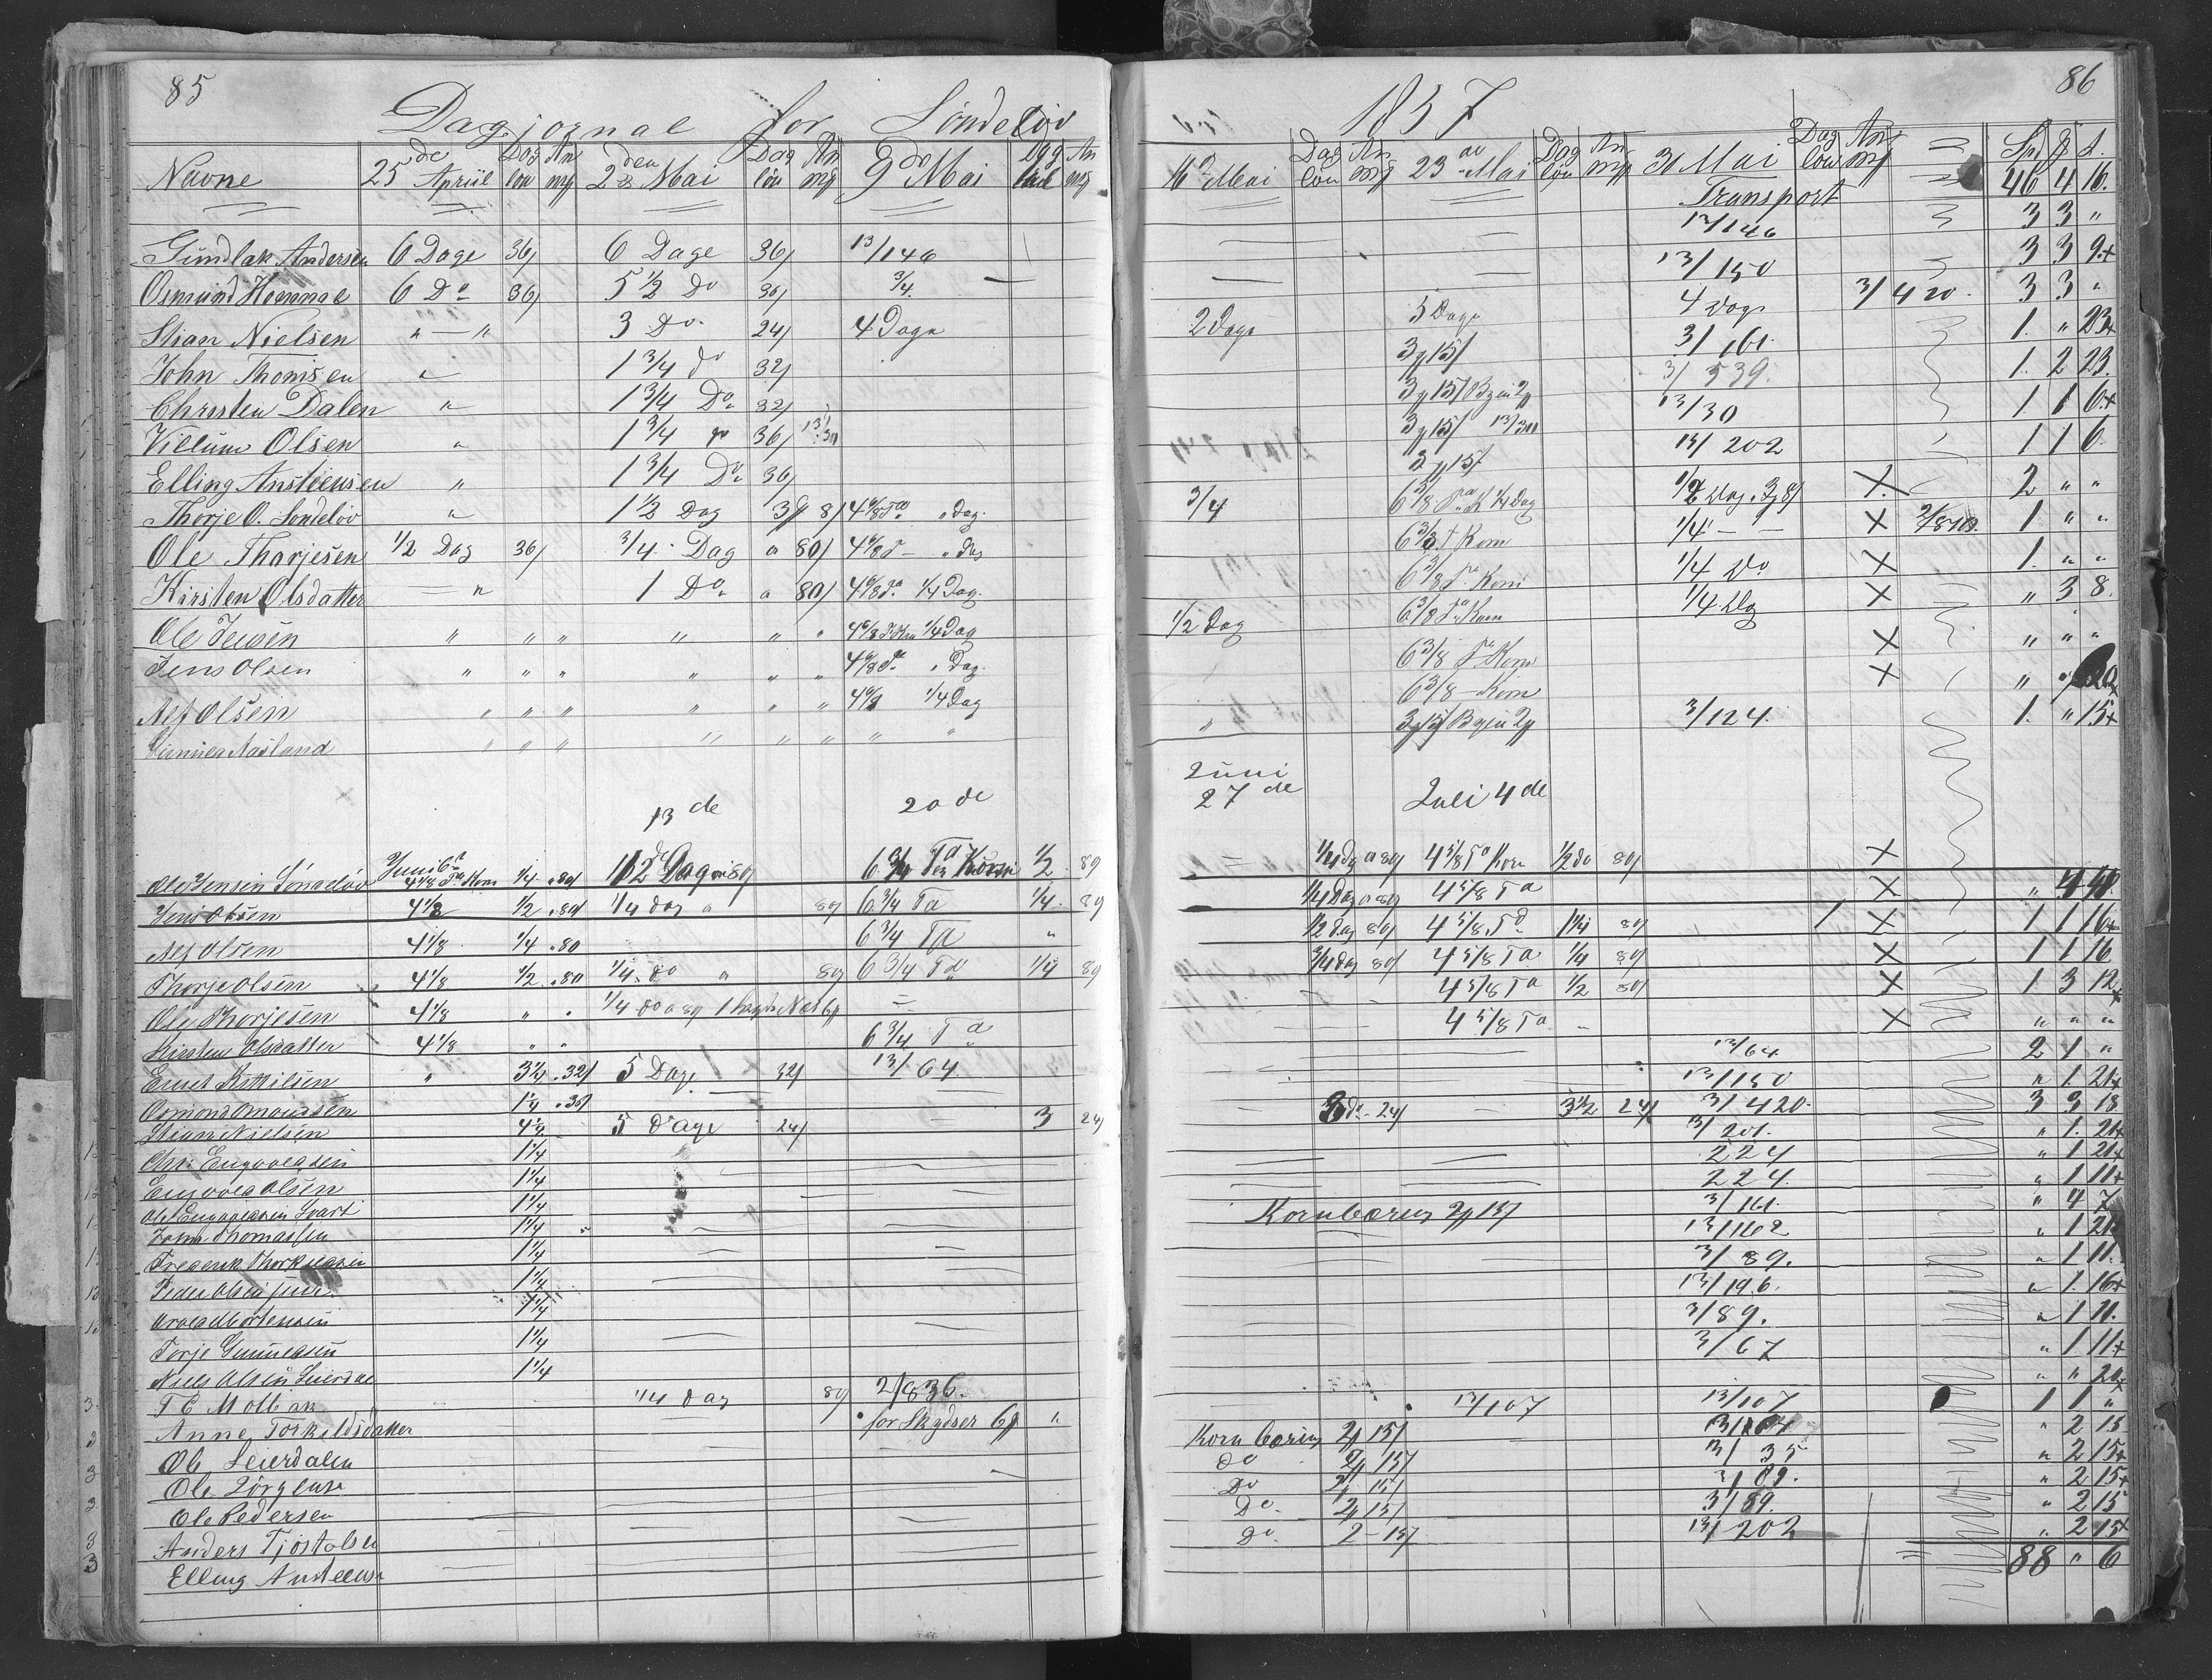 85
Dagjornal for Söndeløv
Navne 25de Apriil Dag løn An mj 2den Mai Dag løn An mj 9de Mai Dag løn An mj
Gundlak Andersen 6 Dage 36/ 6 Dage 36/ 13/146
Osmund Hommae 6 Do 36/ 5 1/2 Do 36/ 3/4
Stian Nielsen " — " 3 Do 24/ 4 Dage
John Thomsen " 1 3/4 do 32/
Christen Dalen " 1 3/4 Do 32/
Villum Olsen " 1 3/4 do 36/ 13/30
Elling Ansteensen " 1 3/4 Do 36/
Thorje O. Sondeløv " 1 1/2 Dag 8/ 4 6/8 Ta " dag.
Ole Thorjesen 1/2 Dag 36/ 3/4 Dag a 80/ 4 6/8 T — " dag
Kirsten Olsdatter — " 1 Do a 80/ 4 6/8 Ta 1/4 Dag.
Ole Jensen " " " " " " 4 6/8 1/4 Dag
Jens Olsen " " " " " " 4 6/8 Ta " Dag.
Alf Olsen " " " " " " 4 6/8 1/4 Dag
Gunnea Aasland " " " " " " " "
13de 20de
Ole Jensen Sönneløv Juni 6te 4 1/8 Ta Korn 1/4 . 80/ 6 3/4 Ta Korn 1/2 . 80
Jens Olsen 4 1/8 1/2 . 80/ 1/4 dag a 80/ 6 3/4 Ta 1/4 . 80
Alf Olsen 4 1/8 1/4 . 80 6 3/4 Ta "
Thorje Olsen 4 1/8 1/2 . 80 1/4 do " 80/ 6 3/4 Ta 1/4 80
Ole Thorjesen 4 1/8 " " 1/4 do a 80 =
Kirsten Olsdatter 4 1/8 " " 6 3/4 Ta
Enut Kittilsen " 3 1/4 . 32/ 5 Dage 32/ 13/64
Osmond Omondsen 1 1/4 . 36/
Stian Nielsen 4 1/4 5 Dage 24/ — 3 24/
Chr: Engvoldsen 1 1/4
Engvold Olsen 1 1/4
Ole Engvoldsen Svart 1 1/4
John Thomassen 1 1/4
Frederik Thorkildsen 1 1/4
Peder Olsen junr. 1 1/4
Arved Mortensen 1 1/4
Torje Gunnersen 1 1/4
Niels Olsen Leierdal 1 1/4
T E Molbak 1/4 dag 80/ 2/836.
Anne Torkildsdatter for Skydser 6/ "
Ole Leierdalen
Ole Jörgense
Ole Pedersen
Anders Tjostolsen
Elling Ansteense
86
1857
16de Mai Dag løn An mj 23de Mai Dag løn An mj 31 Mai Dag løn An mj Sp J s.
Transport 46 4 16.
13/146 3 3 "
13/150 3 3 9.+
2 Dage 5 Dage 4 Dage 3/420. 3 3 "
3/15/ 3/161. 1. " 23+
3/15/ 3/539. 1. 2 23.
3/15/ 13/30 13/30 1 1 6.+
3/15/ 13/202 1 1 6.
3/4 6 3/8 Ta K 1/4 Dag X 2 " "
6 3/8 T Korn 1/4 — — X 1 " "
6 3/8 Ta Korn 1/4 Do X 1. " "
1/2 Dag 6 3/8 Ta Korn 1/4 Dg X " 3 8.
6 3/8 Ta Korn X " " "
6 3/8 — Korn X " "
" 3/15/ 3/124. 1. " 15+
Juni 27de Juli 4de
= 1/4 dg a 80/ 4 5/8 Ta Korn 1/2 do 80/ X
1/4 Dag a 80/ 4 5/8 Ta X "
1/2 dag 80/ 4 5/8 Ta 1 1/4 80/ X 1 1 16+
3/4 dag 80/ 4 5/8 Ta 1/4 80/ X 1 1 16
4 5/8 Ta 1/2 80/ X 1 3 12+
— — 4 5/8 Ta " X " " "
13/64 2 1 "
13/150 " 1. 21+
— 3 do - 24/ — 3 1/2 24/ 3/420. 3 3 18
13/201. " 1. 21+
224 " 1 21+
224. " 1 11+
Kornbæring 2/15/ 3/161. " 4 7
13/162 " 1 21+
3/89. " 1 11.
13/196. " 1. 16+
3/89. " 1 11.
3/67 " 1 11+
" " 20
13/107 13/107 1 1 "
Korn bæring 2/15/ " 2 15
do 2/15/ 3/35 " 2 15+
Do 2/15/ 3/89. " 2 15+
Do 2/15/ 3/89. " 2 15
do. 2 — 15/ 13/202 " 2 15+
88 " 6